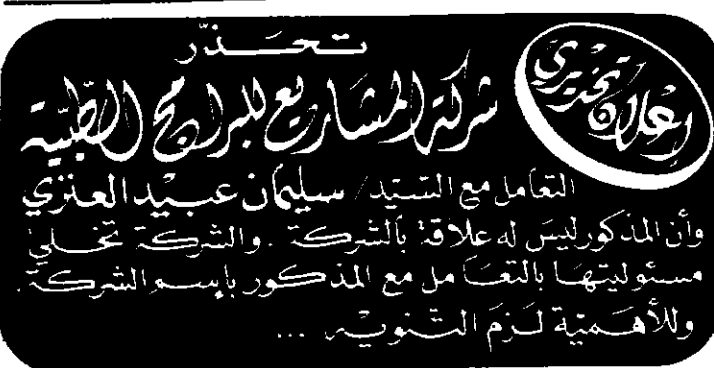 إعلان تحذيري
تحذر
شركة المشاريع للبرامج الطبية
التعامل مع السيد/ سليمان عبيد العنزي
وأن المذكور ليس له علاقة بالشركة . والشركة تخلي
مسئوليتها بالتعامل مع المذكور بإسم الشركة .
وللأهمية لزم التنويه ...